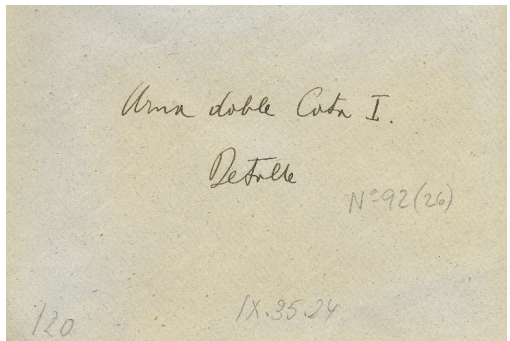 Urna doble Cota I.
Detalle
Nº 92 (26)
IX.35.24
120